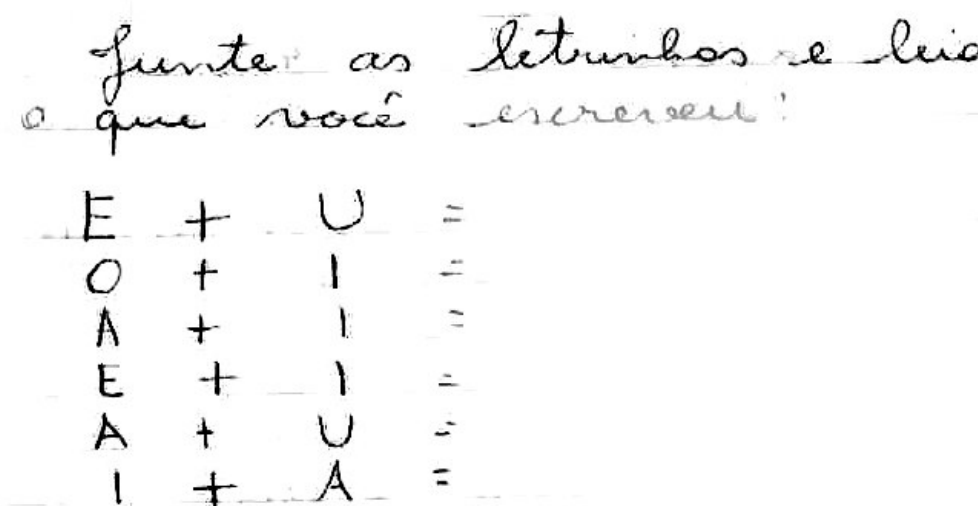 Junte as letrinhas e leia
o que você escreveu:
E + U =
O + I =
A + I =
E + I =
A + U =
I + A =